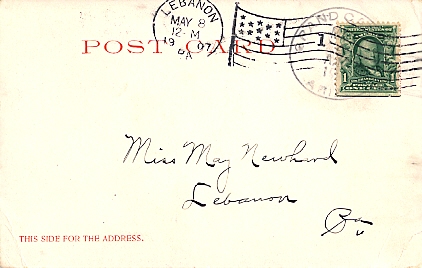 LEBANON
MAY 8
12-M
19 07
PA.
GRAND C
1
POST CARD
Miss May Newhard
Lebanon
Pa
THIS SIDE FOR THE ADDRESS.